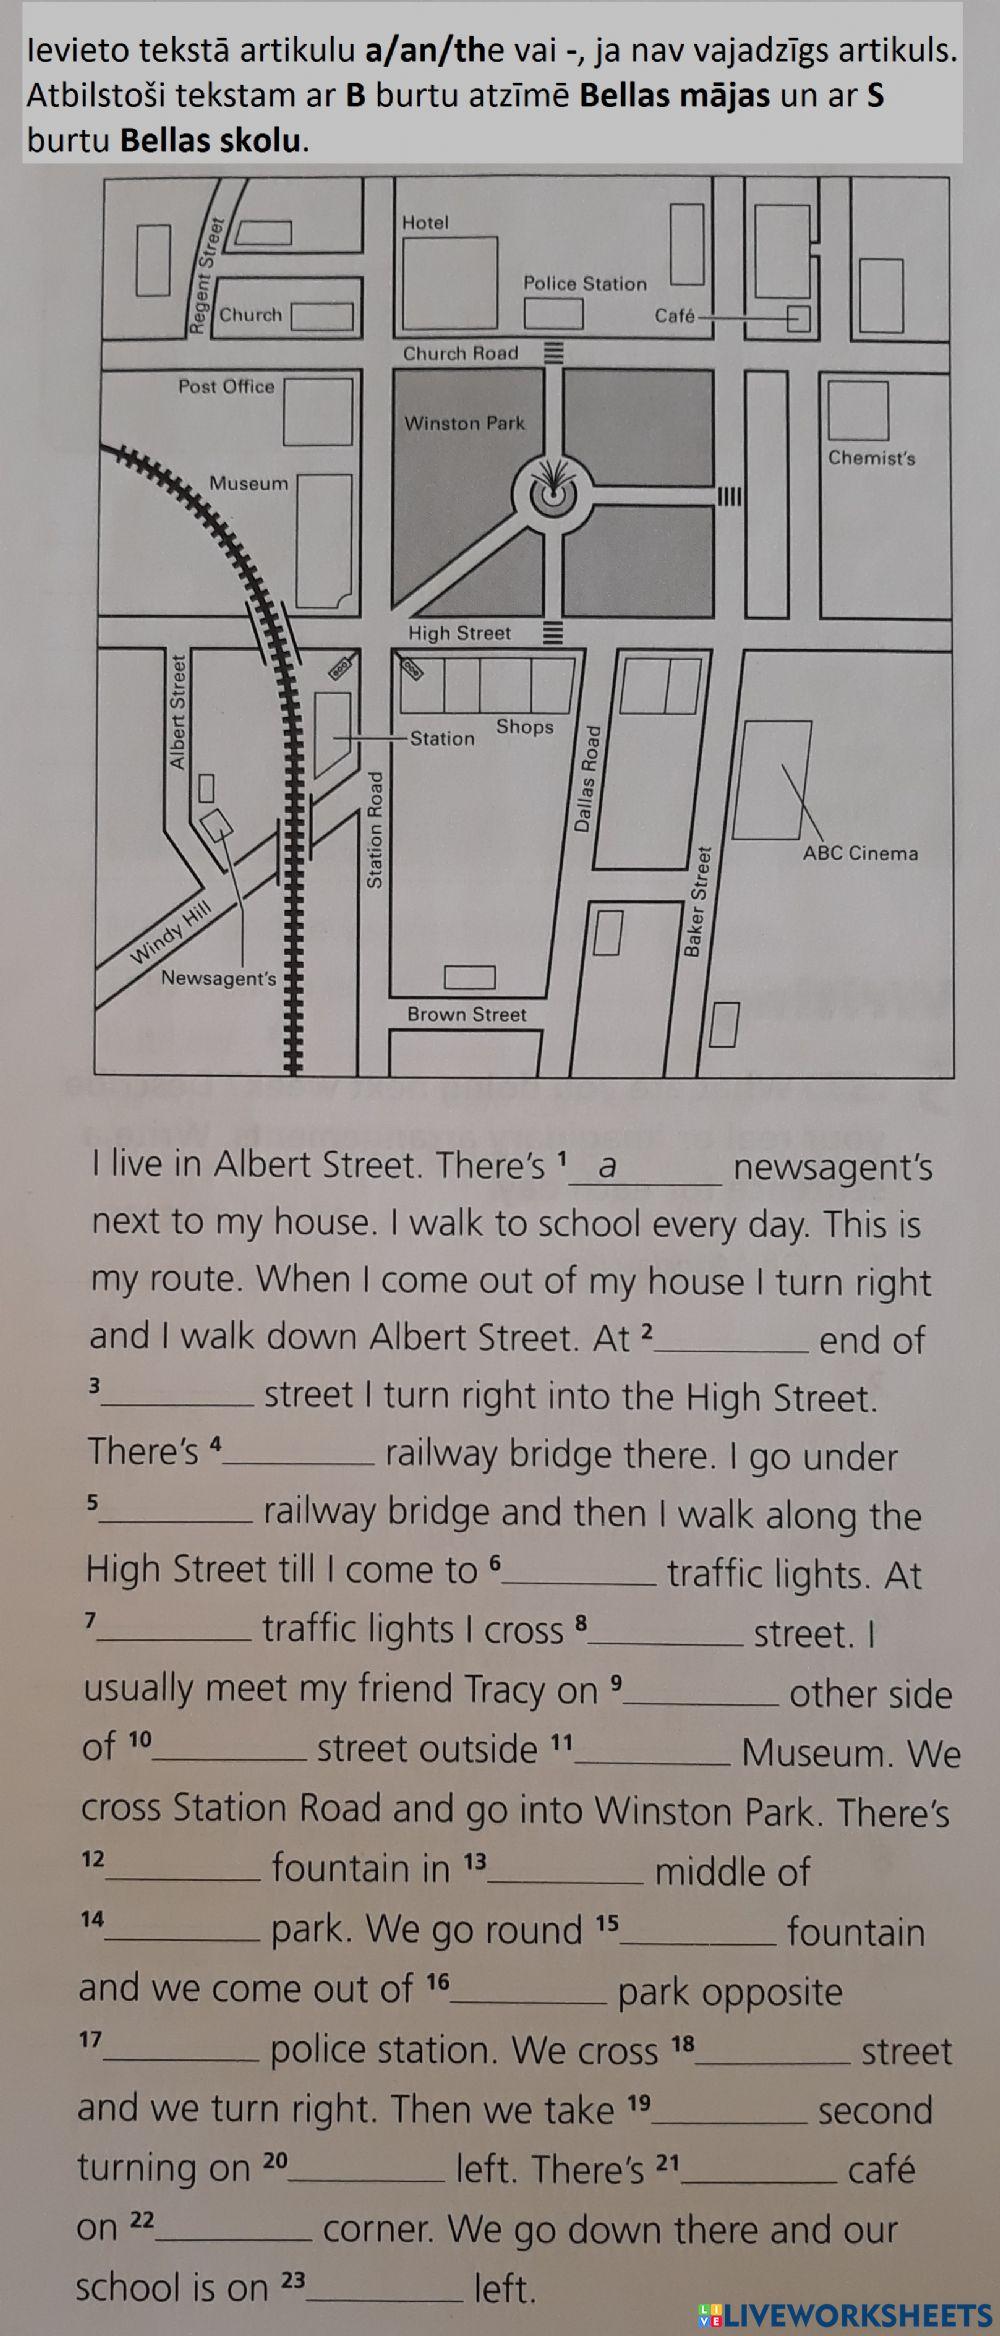 Ievieto tekstā artikulu a/an/the vai -, ja nav vajadzīgs artikuls.
Atbilstoši tekstam ar B burtu atzīmē Bellas mājas un ar S
burtu Bellas skolu.
Regent Street
Hotel
Police Station
Church
Café
Church Road
Post Office
Winston Park
Chemist's
Museum
High Street
Albert Street
Shops
Station
Dallas Road
Station Road
ABC Cinema
Baker Street
Windy Hill
Newsagent's
Brown Street
I live in Albert Street. There's 1 a newsagent's
next to my house. I walk to school every day. This is
my route. When I come out of my house I turn right
and I walk down Albert Street. At 2 ________ end of
3 ________ street I turn right into the High Street.
There's 4 ________ railway bridge there. I go under
5 ________ railway bridge and then I walk along the
High Street till I come to 6 ________ traffic lights. At
7 ________ traffic lights I cross 8 ________ street. I
usually meet my friend Tracy on 9 ________ other side
of 10 ________ street outside 11 ________ Museum. We
cross Station Road and go into Winston Park. There's
12 ________ fountain in 13 ________ middle of
14 ________ park. We go round 15 ________ fountain
and we come out of 16 ________ park opposite
17 ________ police station. We cross 18 ________ street
and we turn right. Then we take 19 ________ second
turning on 20 ________ left. There's 21 ________ café
on 22 ________ corner. We go down there and our
school is on 23 ________ left.
LIVEWORKSHEETS